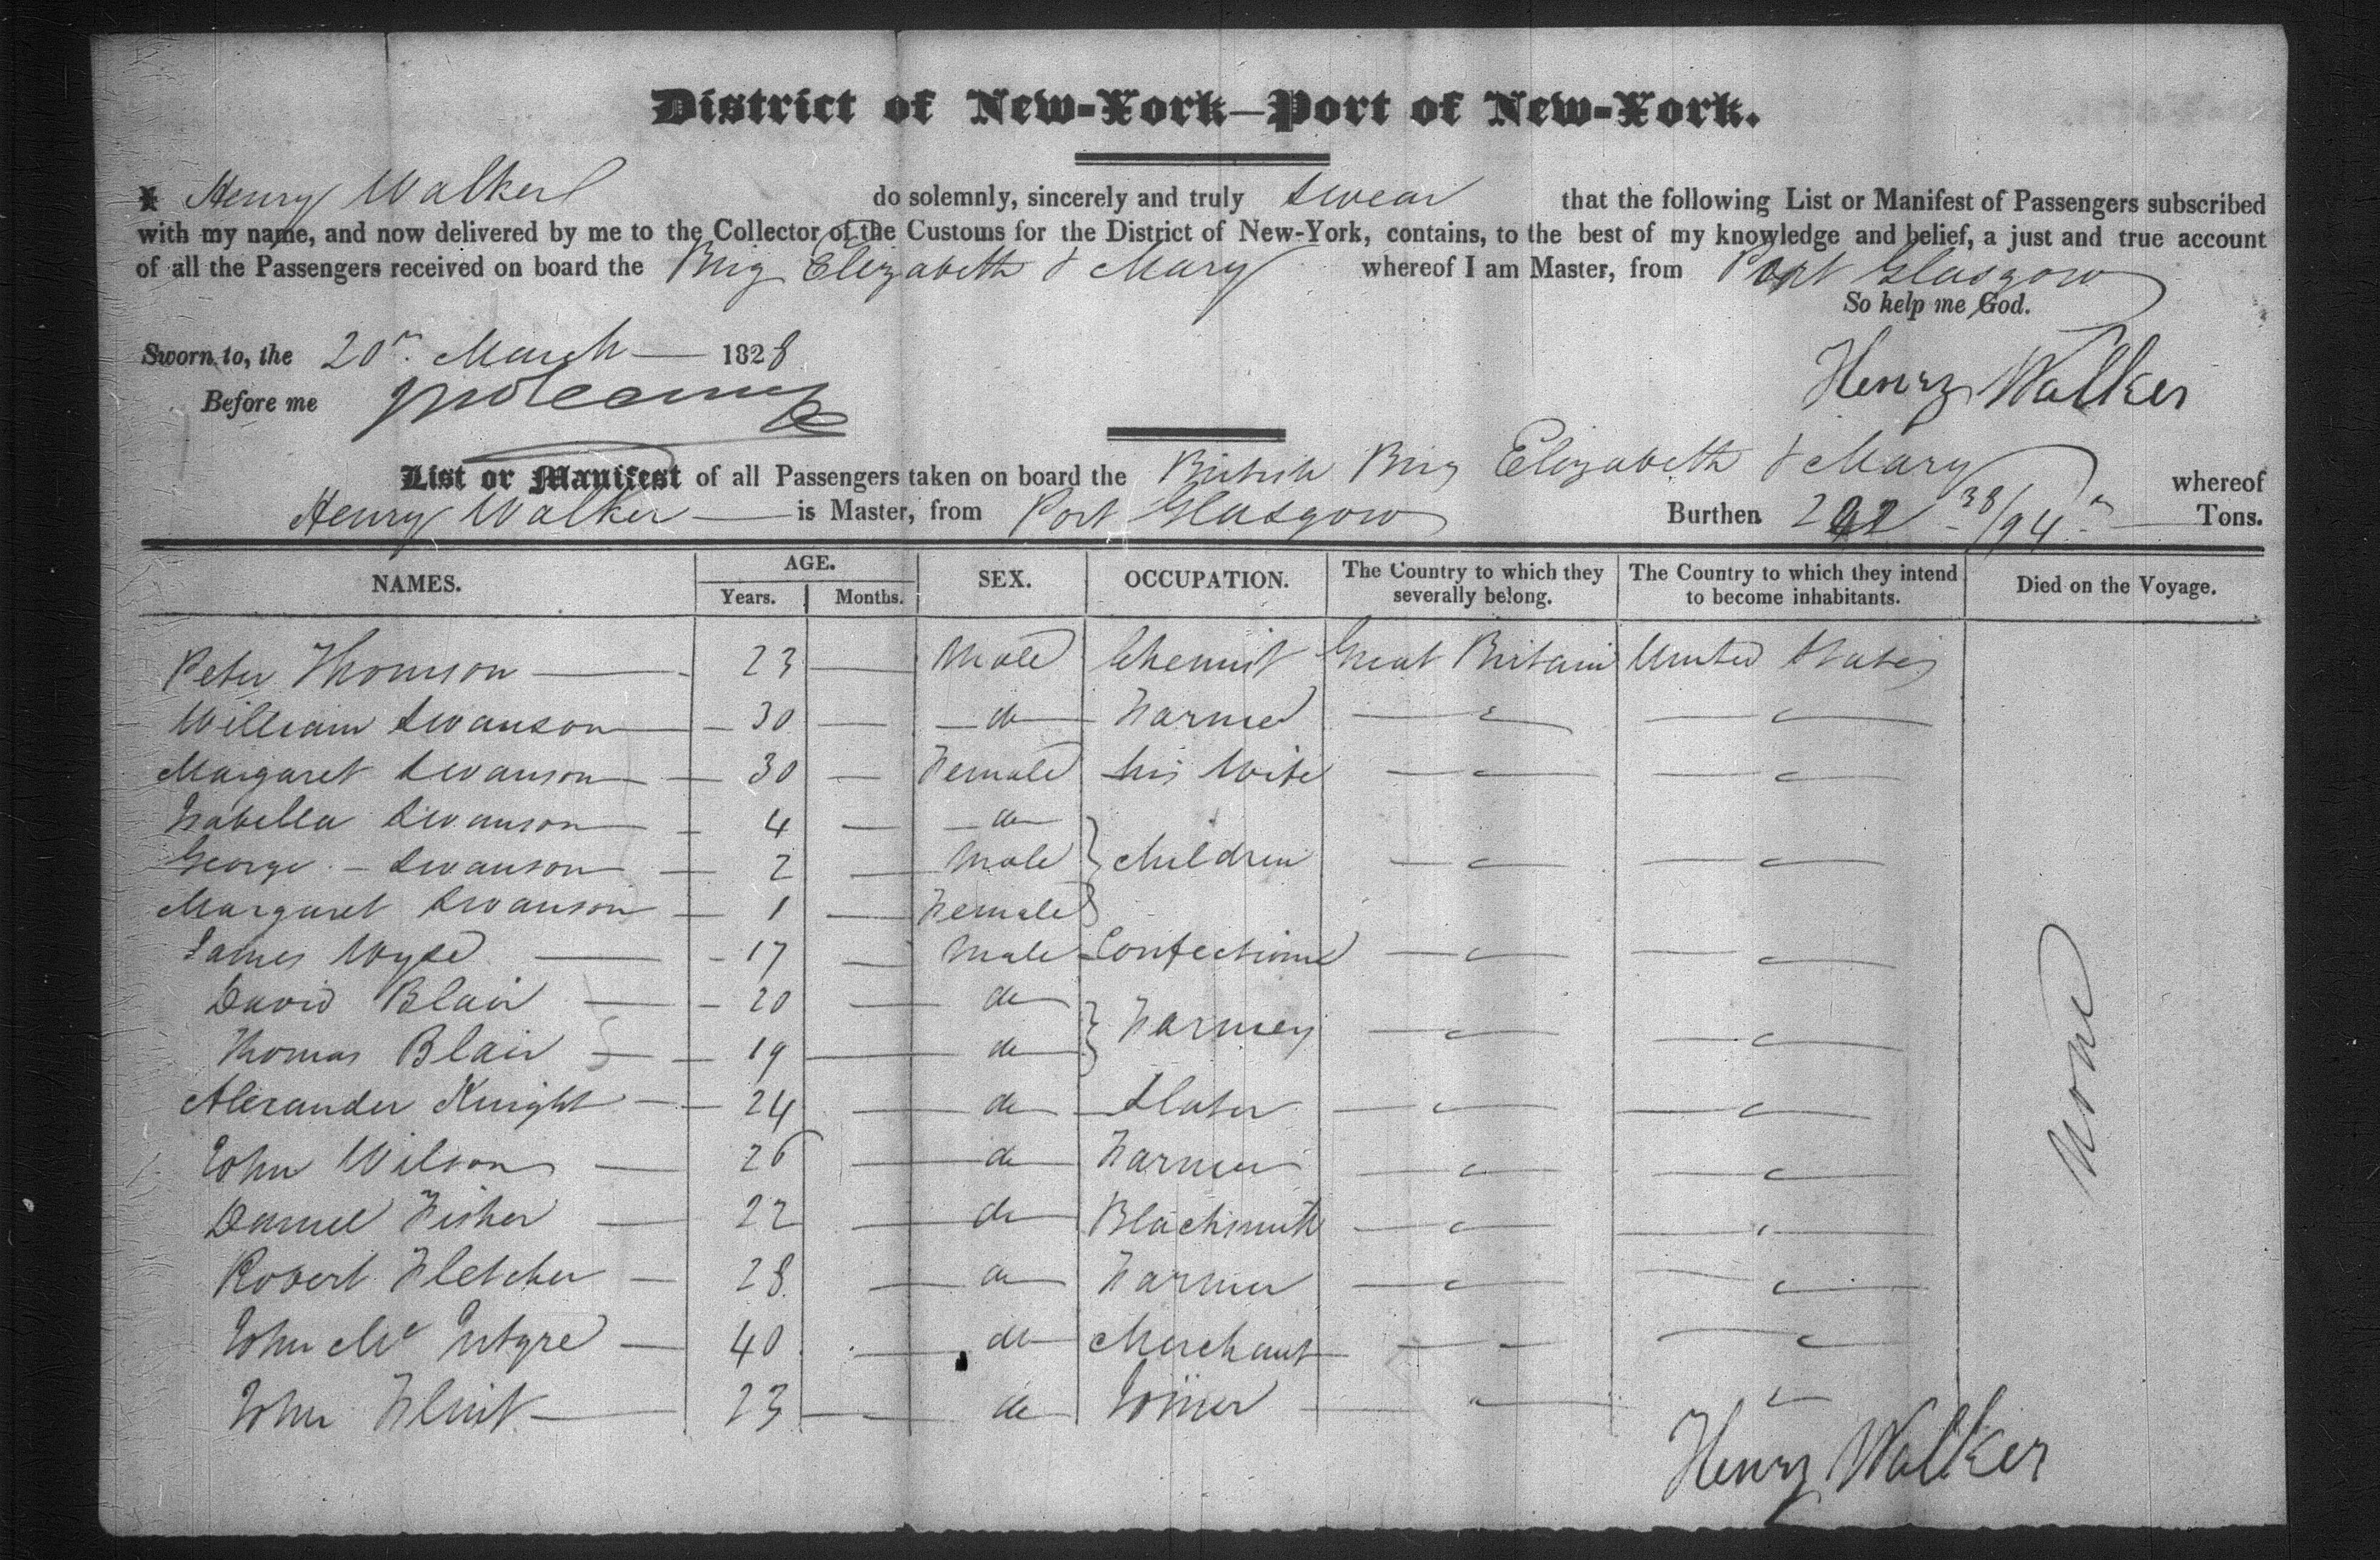 District of New-York—Port of New-York.
I Henry Walker do solemnly, sincerely and truly swear that the following List or Manifest of Passengers subscribed
with my name, and now delivered by me to the Collector of the Customs for the District of New-York, contains, to the best of my knowledge and belief, a just and true account
of all the Passengers received on board the Brig Elizabeth & Mary whereof I am Master, from Port Glasgow
So help me God.
Sworn to, the 20th March — 1828
Henry Walker
Before me
List or Manifest of all Passengers taken on board the British Brig Elizabeth & Mary whereof
Henry Walker — is Master, from Port Glasgow Burthen 38/94 Tons.
NAMES. AGE. Years. Months. SEX. OCCUPATION. The Country to which they severally belong. The Country to which they intend to become inhabitants. Died on the Voyage.
Peter Thomson — 23 — Male Chemist Great Britain United States
William Swanson — 30 — do Farmer — " — — " —
Margaret Swanson — 30 — Female his Wife — " — — " —
Isabella Swanson — 4 — do
George — Swanson — 2 — Male } children — " — — " —
Margaret Swanson — 1 — Female
James Wyse — 17 — Male Confectioner — " — — " —
David Blair — 20 — do
Thomas Blair — 19 — do } Farmers — " — — " —
Alexander Knight — 24 — do Slater — " — — " —
John Wilson — 26 — do Farmer — " — — " —
Daniel Fisher — 22 — do Blacksmith — " — — " —
Robert Fletcher — 28 — do Farmer — " — — " —
John Mc Intyre — 40 — do Merchant — " — — " —
John Flint — 23 — do Joiner — " — — " —
None
Henry Walker